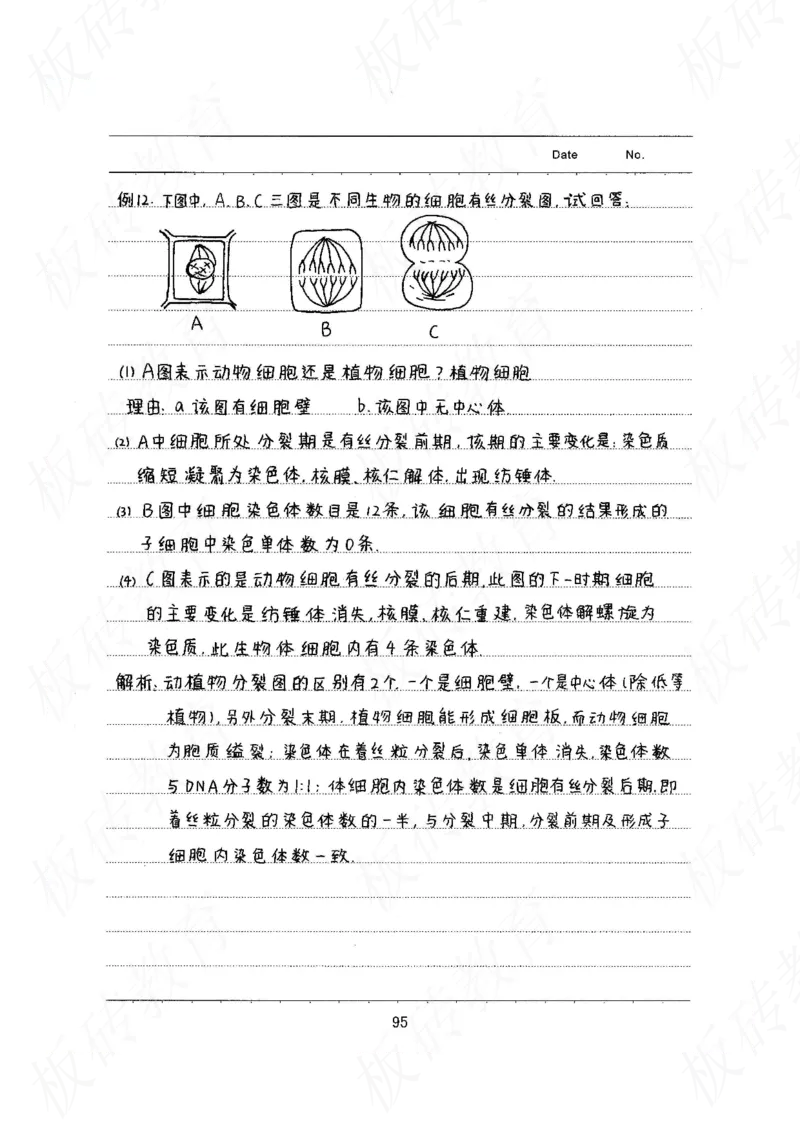 Date No.
例12. 下图中, A、B、C三图是不同生物的细胞有丝分裂图, 试回答:
A
B
C
(1) A图表示动物细胞还是植物细胞? 植物细胞
理由: a 该图有细胞壁 b. 该图中无中心体
(2) A中细胞所处分裂期是有丝分裂前期, 该期的主要变化是: 染色质
缩短凝聚为染色体, 核膜、核仁解体, 出现纺锤体.
(3) B图中细胞染色体数目是12条, 该细胞有丝分裂的结果形成的
子细胞中染色单体数为0条.
(4) C图表示的是动物细胞有丝分裂的后期, 此图的下一时期细胞
的主要变化是纺锤体消失, 核膜、核仁重建, 染色体解螺旋为
染色质, 此生物体细胞内有4条染色体.
解析: 动植物分裂图的区别有2个, 一个是细胞壁, 一个是中心体(除低等
植物), 另外分裂末期, 植物细胞能形成细胞板, 而动物细胞
为胞质缢裂; 染色体在着丝粒分裂后, 染色单体消失, 染色体数
与DNA分子数为1:1; 体细胞内染色体数是细胞有丝分裂后期, 即
着丝粒分裂的染色体数的一半, 与分裂中期, 分裂前期及形成子
细胞内染色体数一致.
95
板砖教育